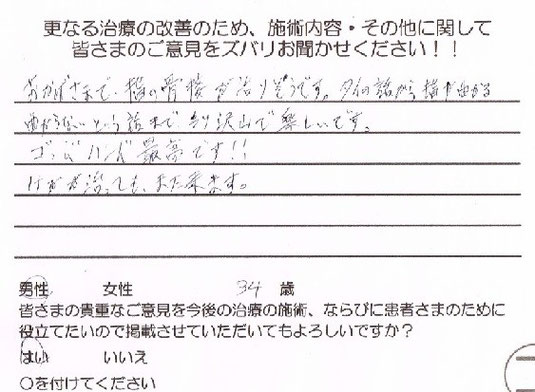 更なる治療の改善のため、施術内容・その他に関して
皆さまのご意見をズバリお聞かせください！！
おかげさまで、指の骨棘が治りそうです。タイの話から指が曲がる
曲がらないという話まで 沢山で楽しいです。
ゴッドハンド最高です!!
けがが治っても、また来ます。
男性 女性 34 歳
皆さまの貴重なご意見を今後の治療の施術、ならびに患者さまのために
役立てたいので掲載させていただいてもよろしいですか？
はい いいえ
○を付けてください